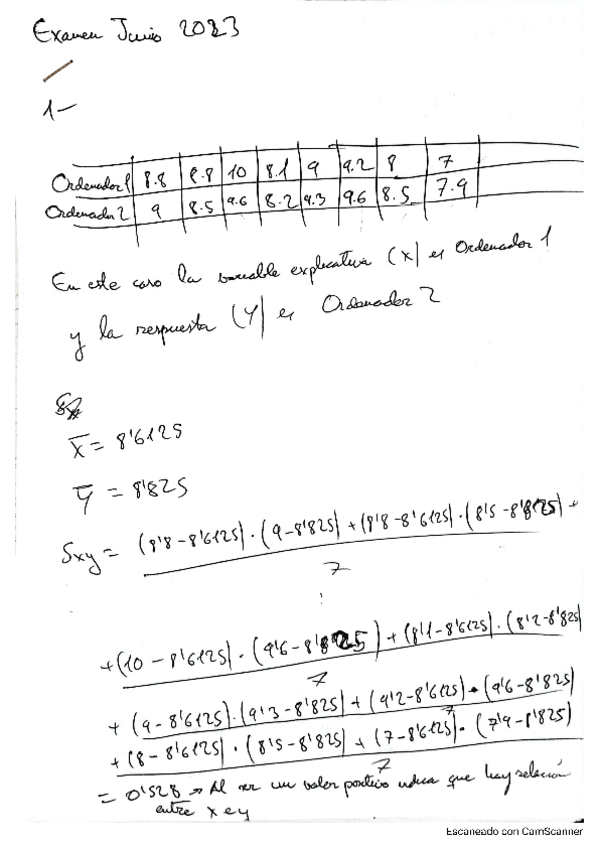 Examen Junio 2023
1-
Ordenador 1 8.8 8.8 10 8.1 9 9.2 8 7
Ordenador 2 9 8.5 9.6 8.2 9.3 9.6 8.5 7.9
En este caso la variable explicativa (X) es Ordenador 1
y la respuesta (Y) es Ordenador 2
X̄ = 8'6125
Ȳ = 8'825
Sxy = (8'8-8'6125)·(9-8'825)+(8'8-8'6125)·(8'5-8'825)+
7
+(10-8'6125)·(9'6-8'825)+(8'1-8'6125)·(8'2-8'825)
7
+(9-8'6125)·(9'3-8'825)+(9'2-8'6125)·(9'6-8'825)
7
+(8-8'6125)·(8'5-8'825)+(7-8'6125)·(7'9-8'825)
7
= 0'528 → Al ser un valor positivo indica que hay relación
entre x e y
Escaneado con CamScanner